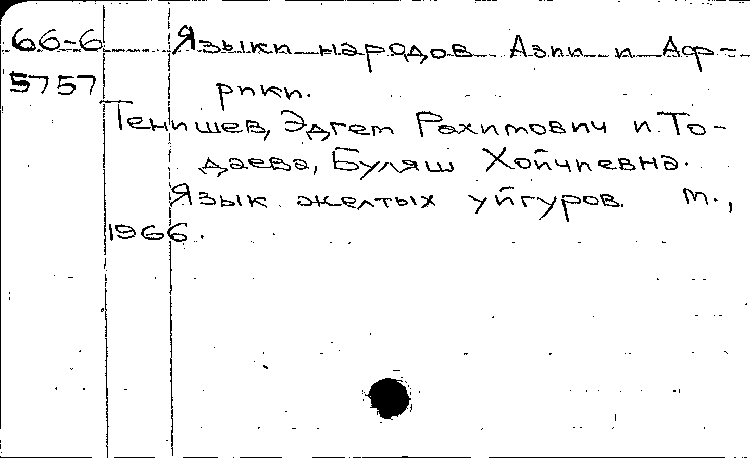 66-6 Языки народов Азии и Аф-
5757 рики.
Тенишев, Эдгем Рахимович и То-
даева, Буляш Хойчиевна.
Язык желтых уйгуров. М.,
1966.